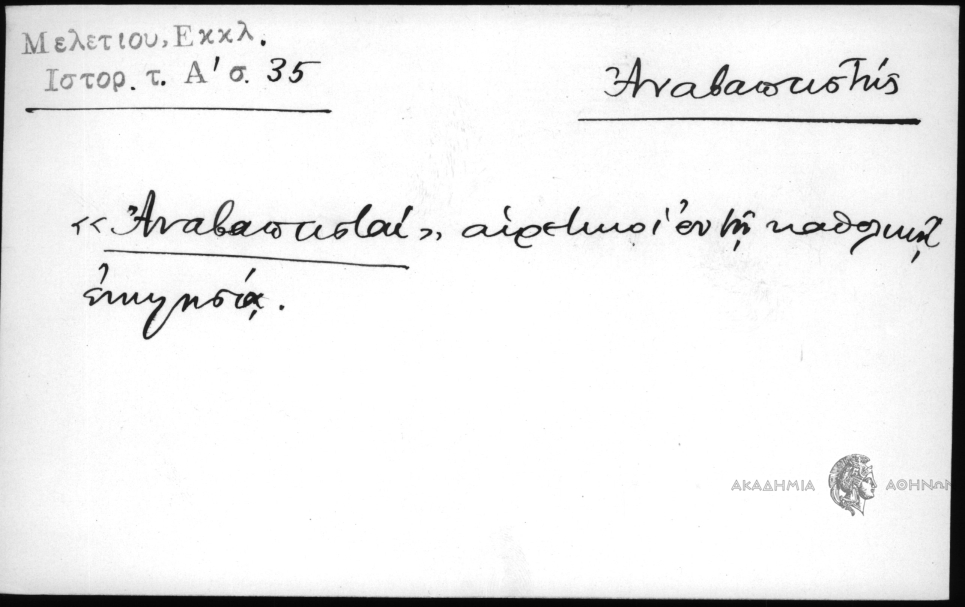 Μελετιου, Εκκλ.
Ιστορ. τ. Α' σ. 35
Ἀναβαπτιστής
«Ἀναβαπτισταί», αἱρετικοί ἐν τῇ καθολικῇ
ἐκκλησίᾳ.
ΑΚΑΔΗΜΙΑ ΑΘΗΝΩΝ